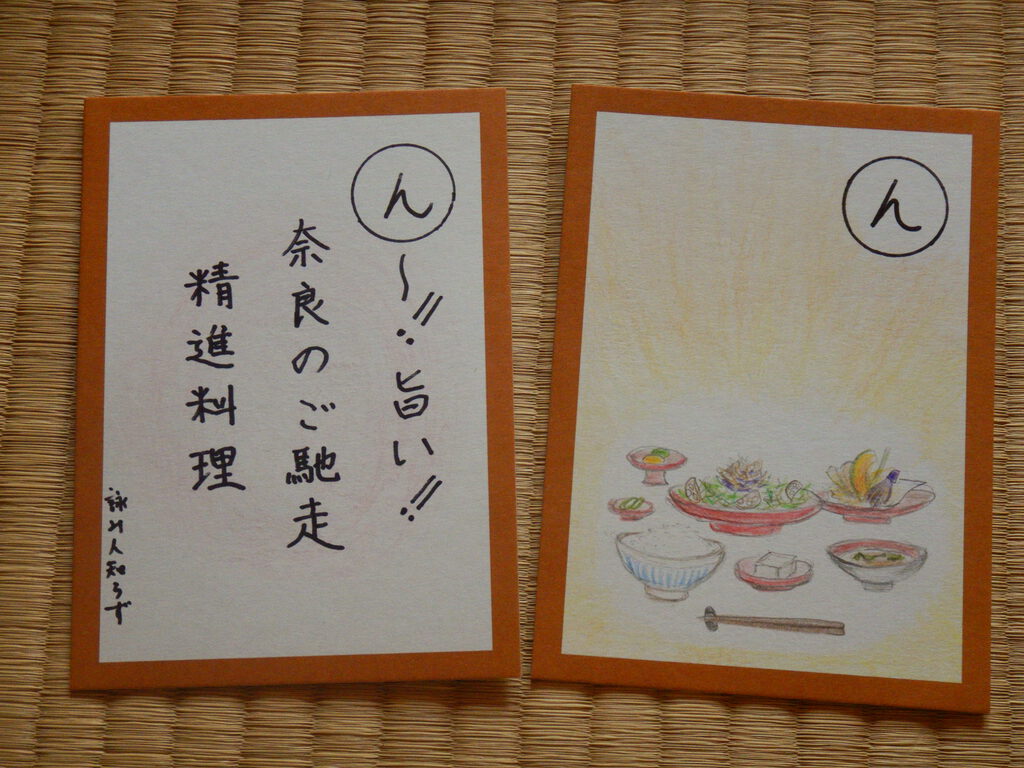 ん～!!旨い!!
奈良のご馳走
精進料理
詠み人知らず
ん